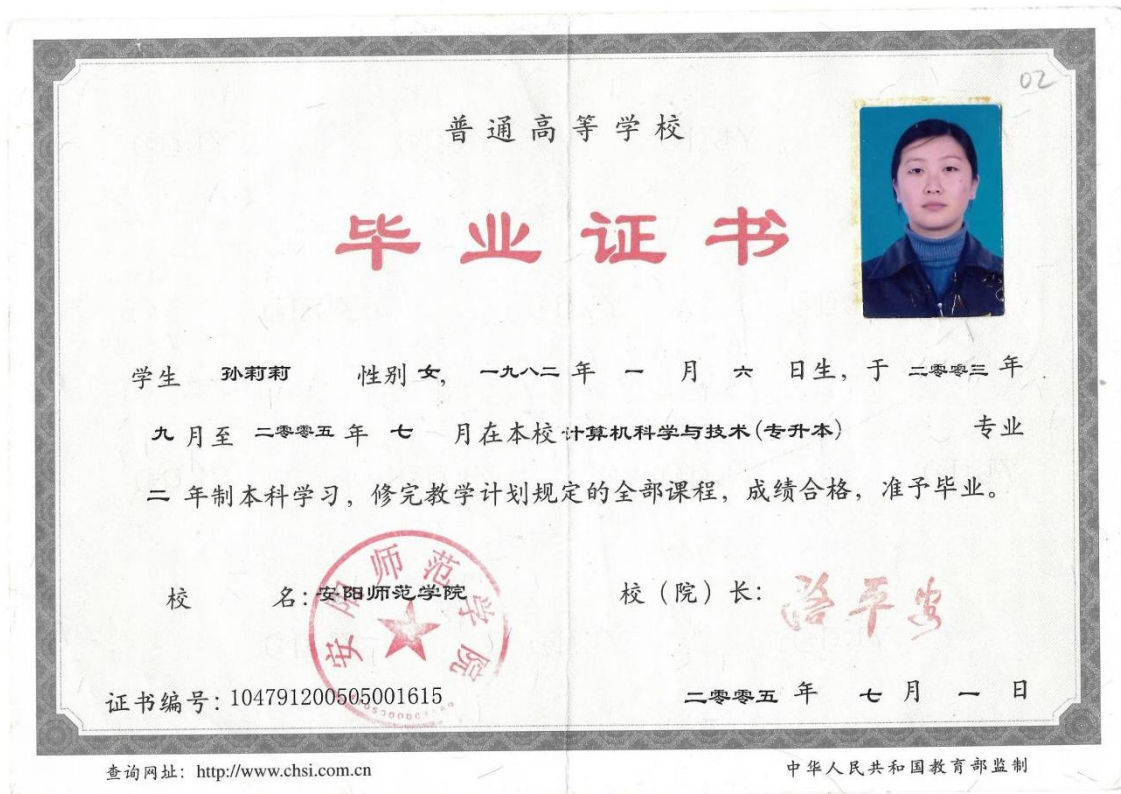 02
普通高等学校
毕业证书
学生 孙莉莉 性别 女, 一九八二 年 一 月 六 日生, 于 二零零三 年
九 月至 二零零五 年 七 月在本校 计算机科学与技术(专升本) 专业
二 年制本科学习, 修完教学计划规定的全部课程, 成绩合格, 准予毕业。
校 名: 安阳师范学院 校 (院) 长:
安阳师范学院
证书编号: 104791200505001615 二零零五 年 七 月 一 日
查询网址: http://www.chsi.com.cn 中华人民共和国教育部监制